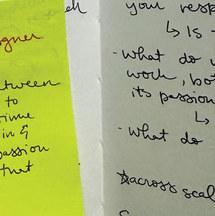 igner
etween
to
time
in &
passion
that
ell
your resp
↳ is -
- what do u
work, bot
its passion
↳
- what do
across scal